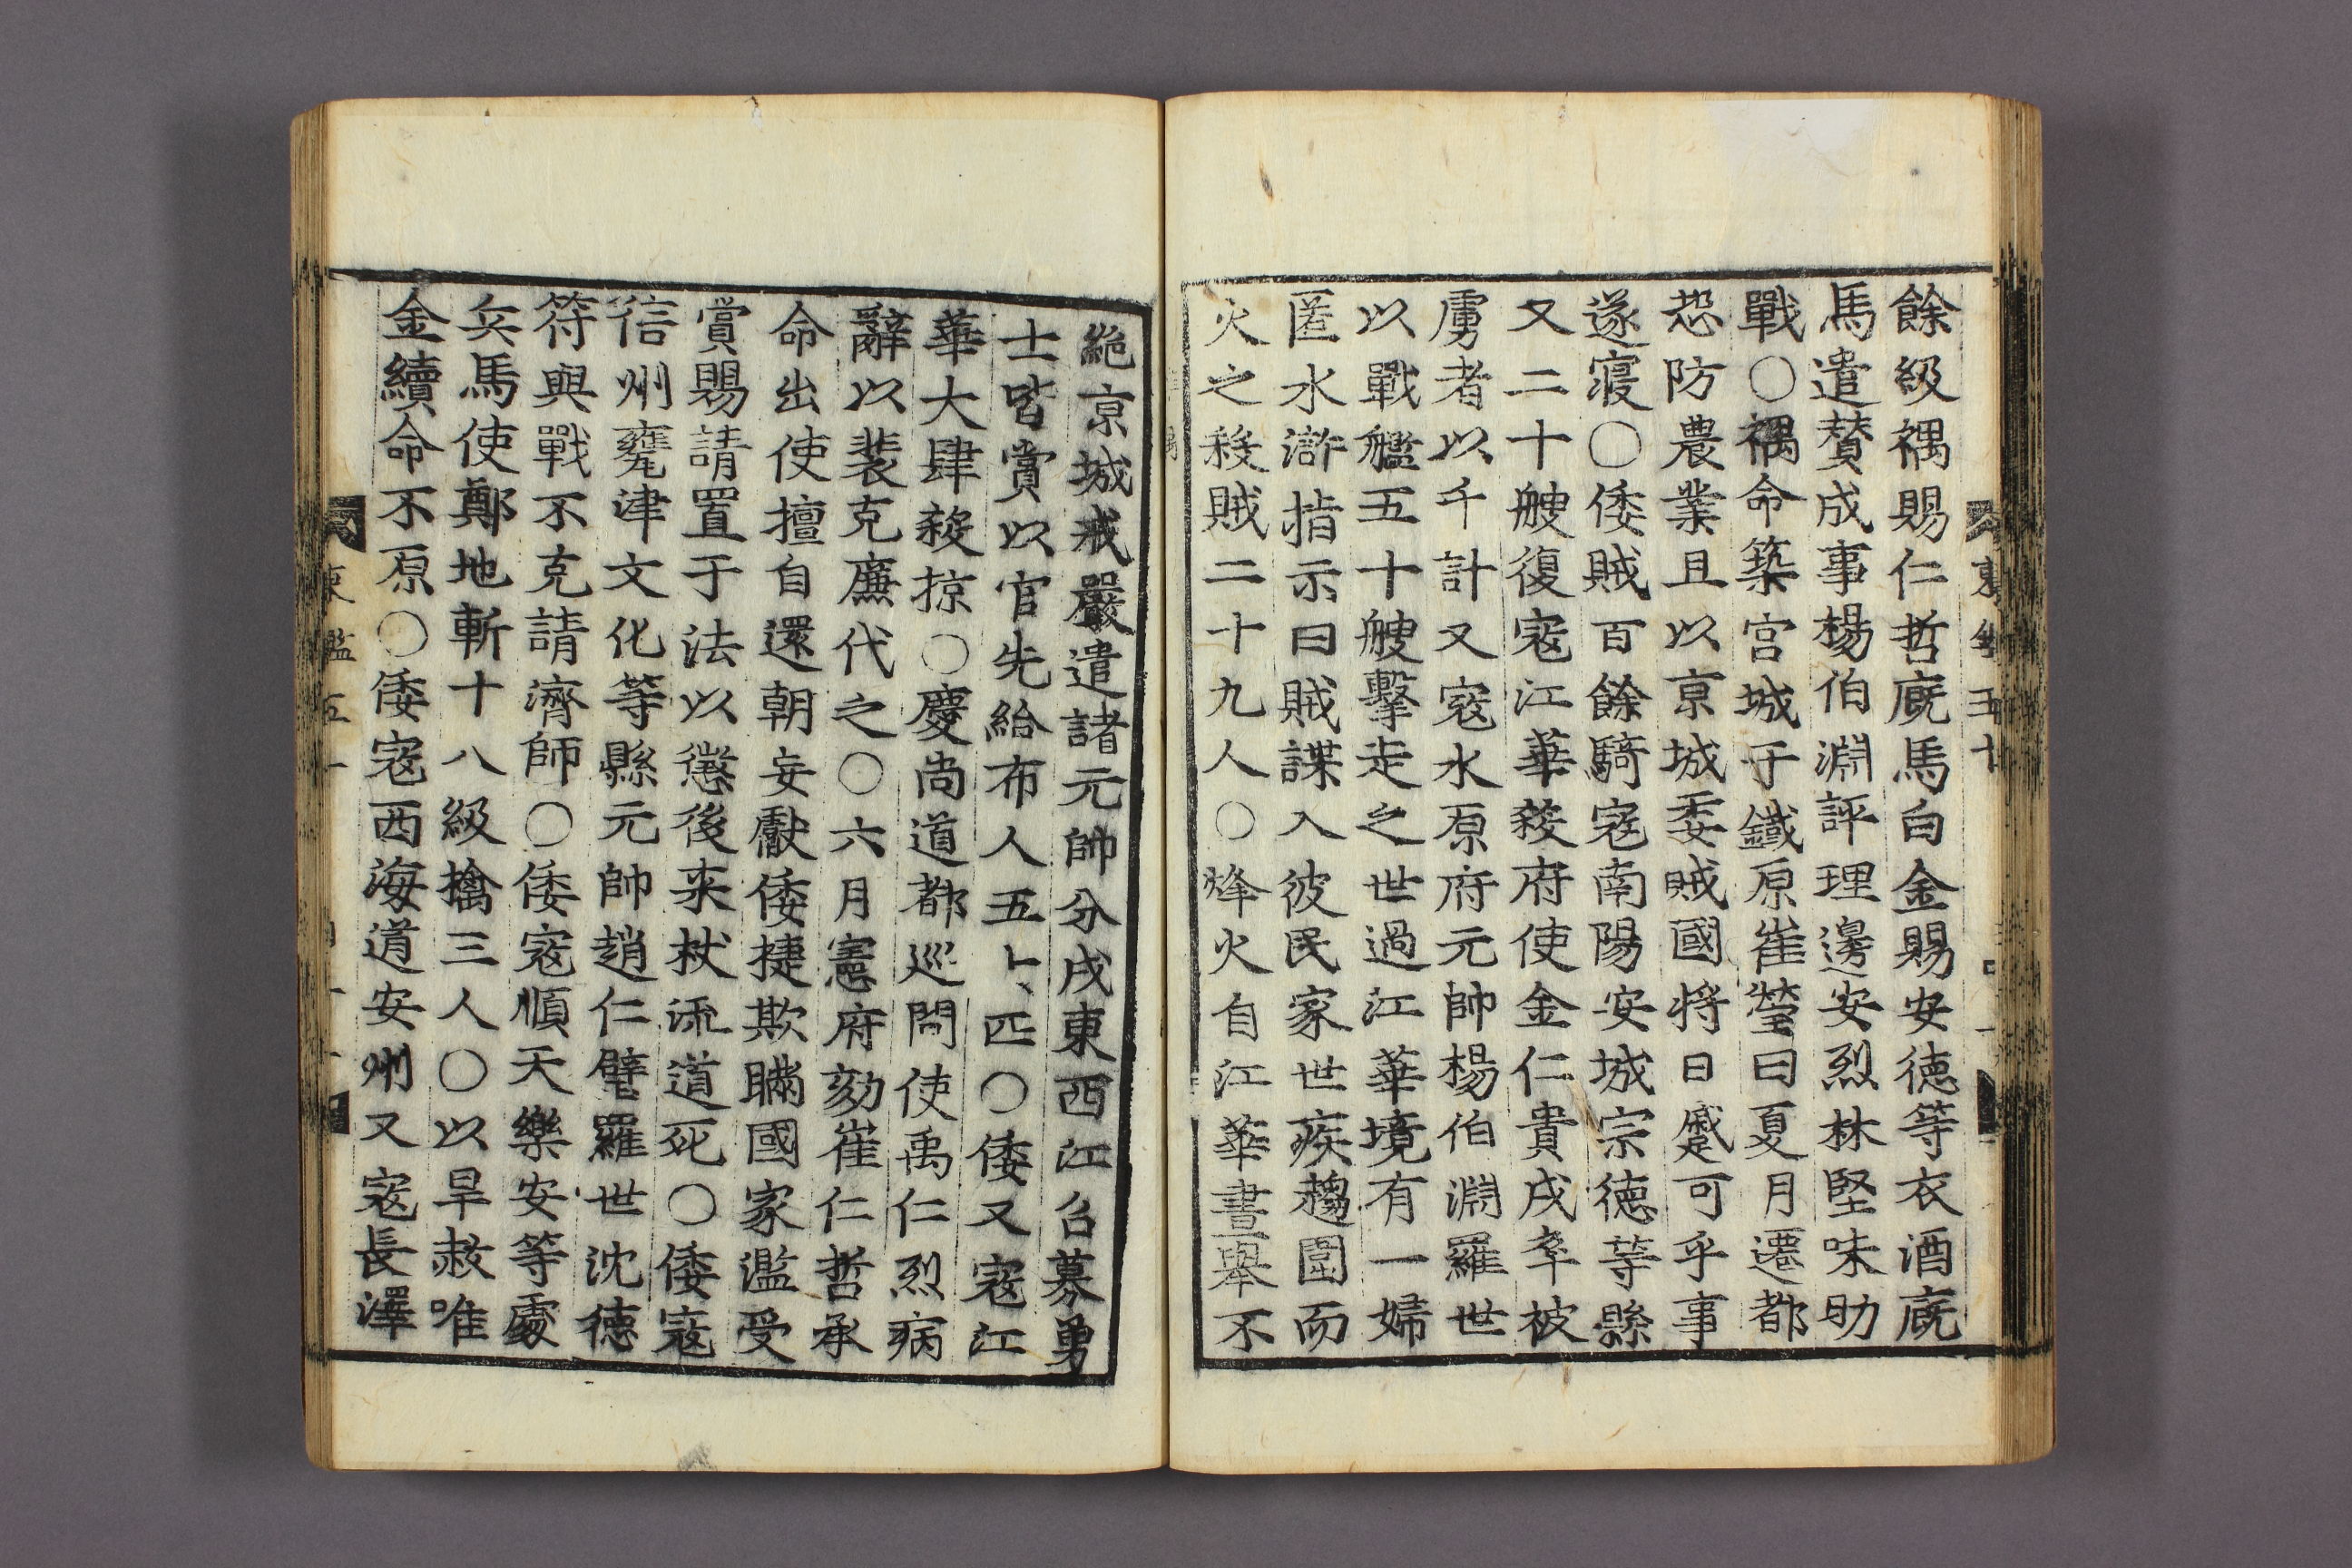 餘級禑賜仁哲廐馬白金賜安徳等衣酒廐
馬遣賛成事楊伯淵評理邊安烈林堅味助
戰○禑命築宮城于鐵原崔瑩曰夏月遷都
恐防農業且以京城委賊國将日蹙可乎事
遂寢○倭賊百餘騎寇南陽安城宗徳等縣
又二十艘復寇江華殺府使金仁貴戍卒被
虜者以千計又寇水原府元帥楊伯淵羅世
以戰艦五十艘擊走之世過江華境有一婦
匿水滸指示曰賊諜入彼民家世疾趨圍而
火之殺賊二十九人○烽火自江華晝擧不
絶京城戒嚴遣諸元帥分戍東西江召募勇
士皆賞以官先給布人五十匹○倭又寇江
華大肆殺掠○慶尚道都巡問使禹仁烈病
辭以裴克廉代之○六月憲府劾崔仁哲承
命出使擅自還朝妄獻倭捷欺瞞國家濫受
賞賜請置于法以懲後来杖流道死○倭寇
信州甕津文化等縣元帥趙仁璧羅世沈徳
符與戰不克請濟師○倭寇順天樂安等處
兵馬使鄭地斬十八級擒三人○以旱赦唯
金續命不原○倭寇西海道安州又寇長澤